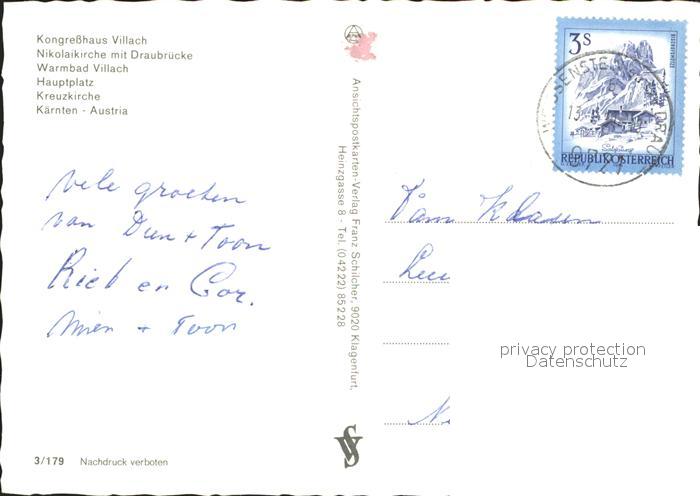 Kongreßhaus Villach
Nikolaikirche mit Draubrücke
Warmbad Villach
Hauptplatz
Kreuzkirche
Kärnten - Austria
vele groeten
van Dien + Toon
Riet en Cor.
Mien + Toon
3/179 Nachdruck verboten
Ansichtspostkarten-Verlag Franz Schilcher, 9020 Klagenfurt,
Heinzgasse 8 - Tel. (04222) 85228
3 S
REPUBLIK ÖSTERREICH
Fam Klaasen
privacy protection
Datenschutz